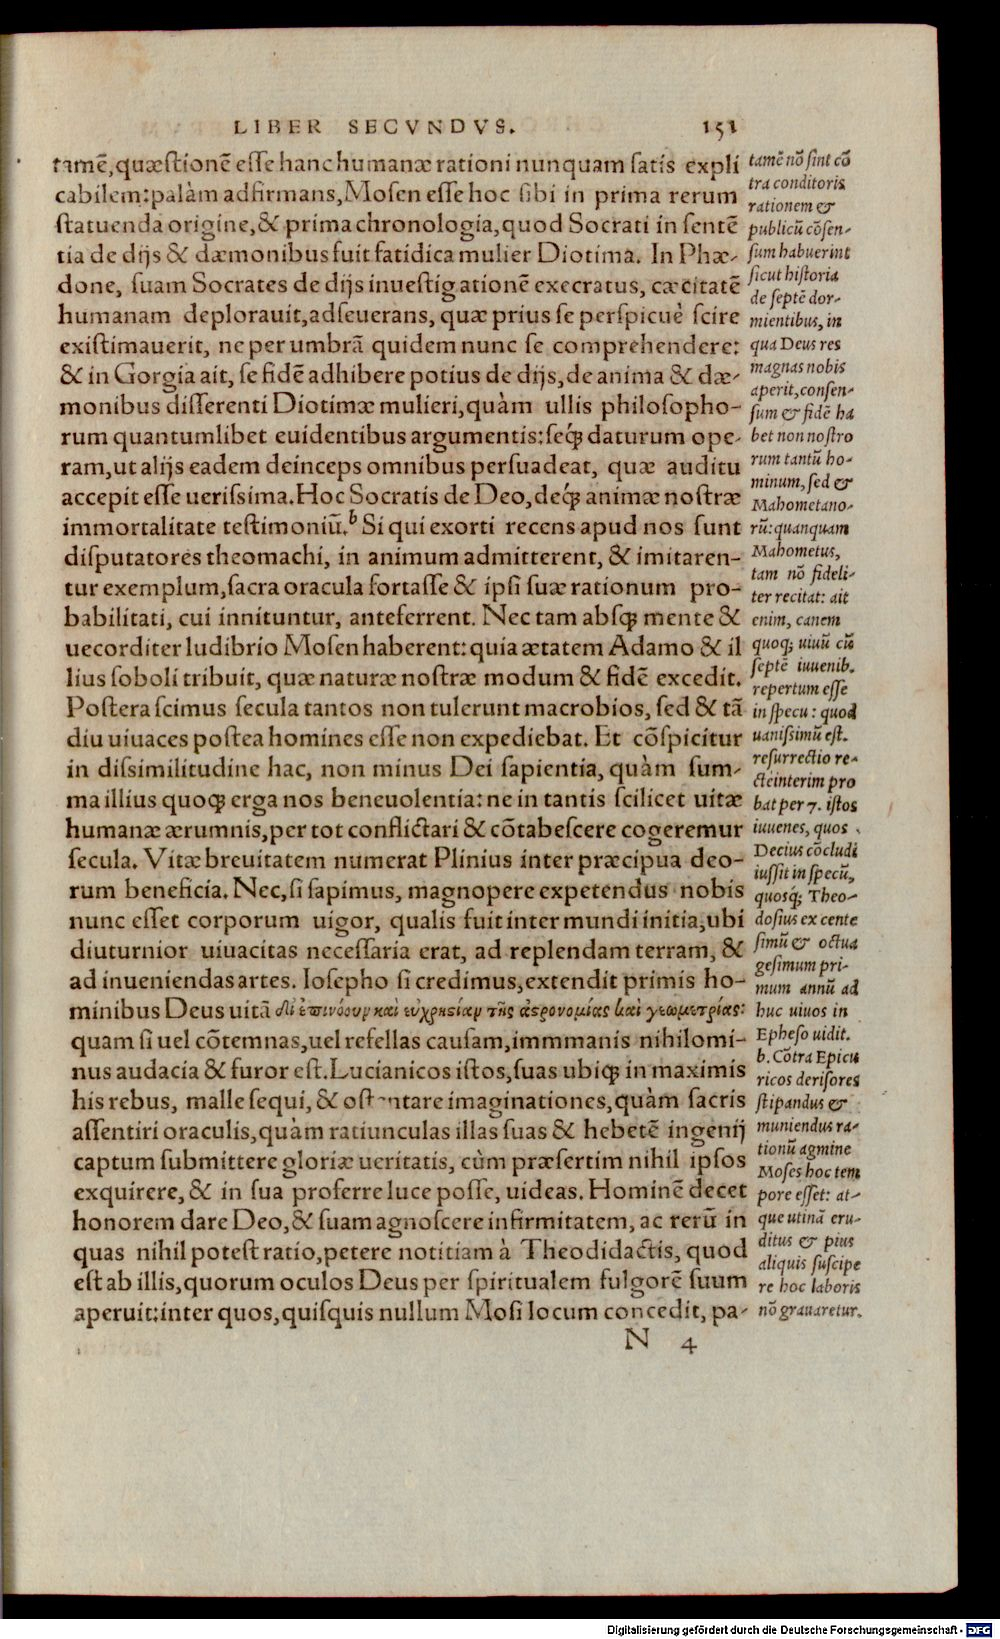 LIBER SECVNDVS. 151
tamē, quæstionē esse hanc humanæ rationi nunquam satis expli
cabilem: palàm adfirmans, Mosen esse hoc sibi in prima rerum
statuenda origine, & prima chronologia, quod Socrati in sentē
tia de dijs & dæmonibus fuit fatidica mulier Diotima. In Phæ-
done, suam Socrates de dijs inuestigationē execratus, cæcitatē
humanam deplorauit, adseuerans, quæ prius se perspicuè scire
existimauerit, ne per umbrā quidem nunc se comprehendere:
& in Gorgia ait, se fidē adhibere potius de dijs, de anima & dæ-
monibus disserenti Diotimæ mulieri, quàm ullis philosopho-
rum quantumlibet euidentibus argumentis: seq́ꝫ daturum ope-
ram, ut alijs eadem deinceps omnibus persuadeat, quæ auditu
accepit esse uerissima. Hoc Socratis de Deo, deq́ꝫ animæ nostræ
immortalitate testimoniū. b Si qui exorti recens apud nos sunt
disputatores theomachi, in animum admitterent, & imitaren-
tur exemplum, sacra oracula fortasse & ipsi suæ rationum pro-
babilitati, cui innituntur, anteferrent. Nec tam absqꝫ mente &
uecorditer ludibrio Mosen haberent: quia ætatem Adamo & il
lius soboli tribuit, quæ naturæ nostræ modum & fidē excedit.
Postera scimus secula tantos non tulerunt macrobios, sed & tā
diu uiuaces postea homines esse non expediebat. Et cōspicitur
in dissimilitudine hac, non minus Dei sapientia, quàm sum-
ma illius quoqꝫ erga nos beneuolentia: ne in tantis scilicet uitæ
humanæ ærumnis, per tot conflictari & cōtabescere cogeremur
secula. Vitæ breuitatem numerat Plinius inter præcipua deo-
rum beneficia. Nec, si sapimus, magnopere expetendus nobis
nunc esset corporum uigor, qualis fuit inter mundi initia, ubi
diuturnior uiuacitas necessaria erat, ad replendam terram, &
ad inueniendas artes. Iosepho si credimus, extendit primis ho-
minibus Deus uitā δι' ἐπινόουν καὶ εὐχρηςίαν τῆς ἀςρονομίας καὶ γεωμετρίας:
quam si uel cōtemnas, uel refellas causam, immmanis nihilomi-
nus audacia & furor est. Lucianicos istos, suas ubiqꝫ in maximis
his rebus, malle sequi, & ostentare imaginationes, quàm sacris
assentiri oraculis, quàm ratiunculas illas suas & hebetē ingenij
captum submittere gloriæ ueritatis, cùm præsertim nihil ipsos
exquirere, & in sua proferre luce posse, uideas. Hominē decet
honorem dare Deo, & suam agnoscere infirmitatem, ac rerū in
quas nihil potest ratio, petere notitiam à Theodidactis, quod
est ab illis, quorum oculos Deus per spiritualem fulgorē suum
aperuit: inter quos, quisquis nullum Mosi locum concedit, pa-
N 4
tamē nō sint cō
tra conditoris
rationem &
publicū cōsen-
sum habuerint
sicut historia
de septē dor-
mientibus, in
qua Deus res
magnas nobis
aperit, consen-
sum & fidē ha
bet non nostro
rum tantū ho-
minum, sed &
Mahometano-
rū: quanquam
Mahometus,
tam nō fideli-
ter recitat: ait
enim, canem
quoqꝫ uiuū cū
septē iuuenib.
repertum esse
in specu: quod
uanissimū est.
resurrectio re-
cte interim pro
bat per 7. istos
iuuenes, quos
Decius cōcludi
iussit in specū,
quosq́ꝫ Theo-
dosius ex cente
simū & octua
gesimum pri-
mum annū ad
huc uiuos in
Epheso uidit.
b. Cōtra Epicu
ricos derisores
stipandus &
muniendus ra-
tionū agmine
Moses hoc tem
pore esset: at-
que utinā eru-
ditus & pius
aliquis suscipe
re hoc laboris
nō grauaretur.
Digitalisierung gefördert durch die Deutsche Forschungsgemeinschaft - DFG